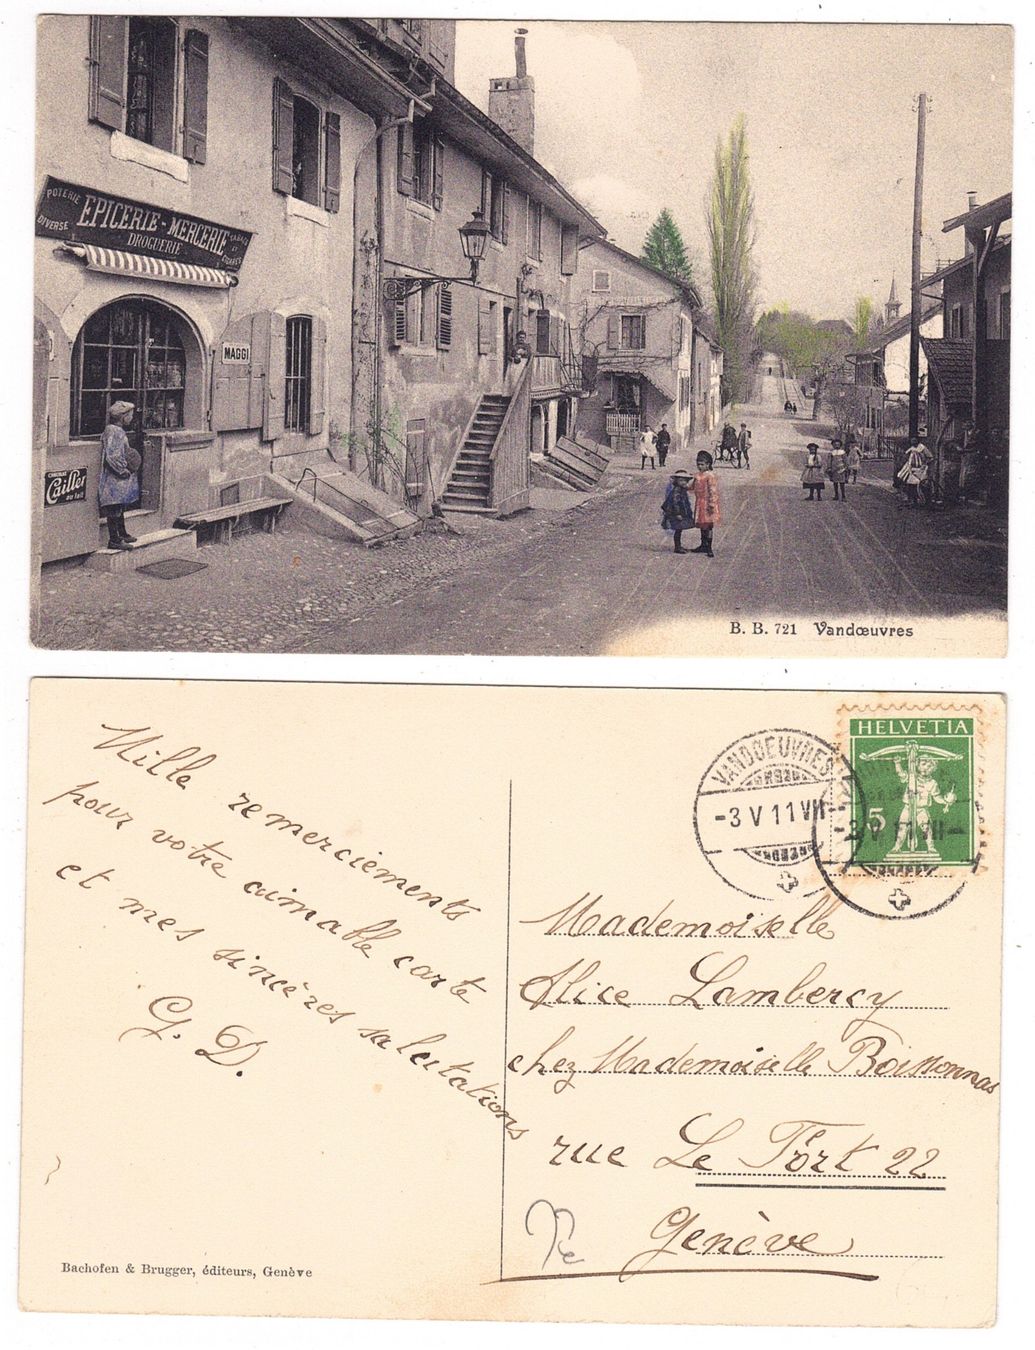 POTERIE
DIVERSE
EPICERIE-MERCERIE
DROGUERIE
TABACS
ET
CIGARES
MAGGI
CHOCOLAT
Cailler
au lait
B. B. 721 Vandœuvres
Mille remerciements
pour votre aimable carte
et mes sincères salutations
G. D.
Bachofen & Brugger, éditeurs, Genève
VANDOEUVRES
-3 V 11 VII-
HELVETIA
5
-3 V 11 VII-
Mademoiselle
Alice Lambercy
chez Mademoiselle Boissonnas
rue Le Fort 22
Genève